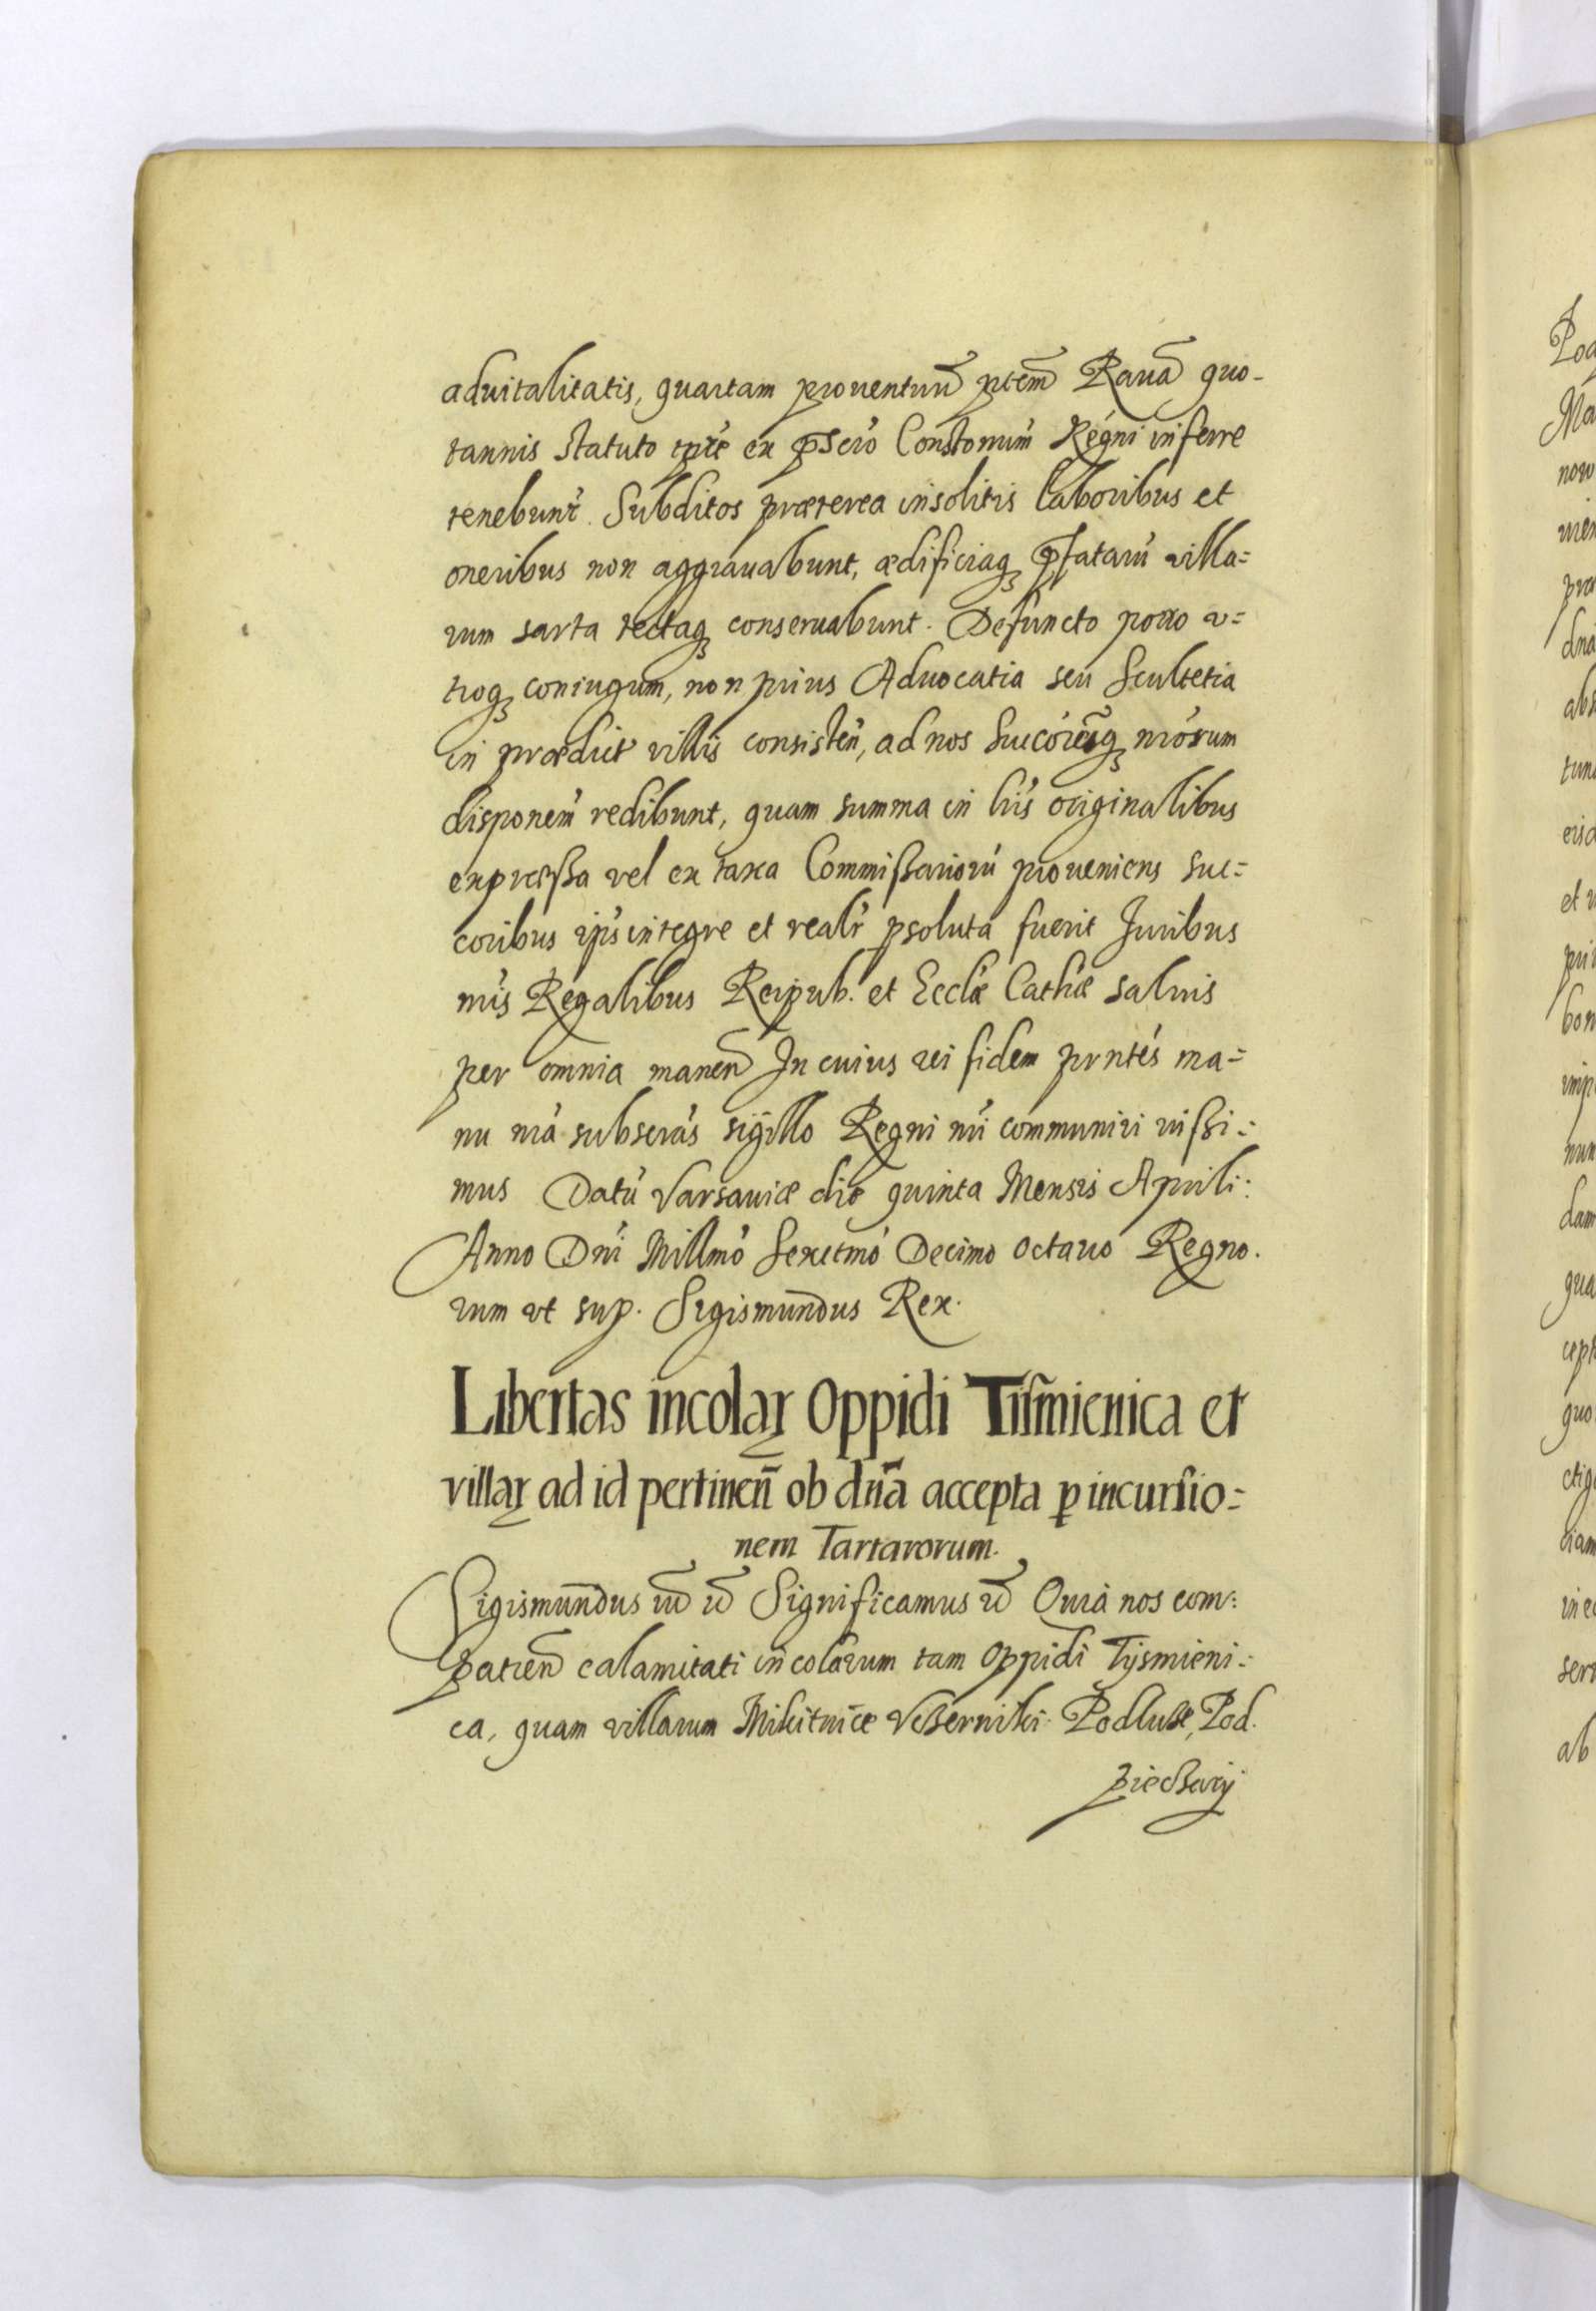 aduitalitatis, quartam prouentuũ ptem̃ Rauã quo-
tannis statuto tpre ex pscro Constonum Regni inferre
tenebunt. Subditos præterea insolitis laboribus et
oneribus non aggrauabunt, ædificiaq; pfatarũ villa=
rum sarta tectaq; conseruabunt. Defuncto porro v=
troq; coniugum, non prius Aduocatia seu Scultetia
in prædict villis consisten, ad nos Succoresq; nrosrum
disponem redibunt, quam summa in lris originalibus
expressa vel ex taxa Commissariorũ proueniens suc=
coribus ipsis integre et realr psoluta fuerit Juribus
nris Regalibus Reipub. et Ecclæ Cathæ saluis
per omnia manen̄ In cuius rei fidem prntes ma=
nu nra subscras sigillo Regni nri communiri iussi=
mus Datũ Varsauiæ die quinta Mensis Aprili:
Anno Dni Millmo Sexctmo Decimo octauo Regno.
rum vt sup. Sigismundus Rex.
Libertas incolaꝝ Oppidi Tismienica et
villaꝝ ad id pertinen̄ ob dña accepta ꝑ incursio=
nem Tartarorum.
Sigismundus Significamus Quia nos com=
patien̄ calamitati incolarum tam Oppidi Tysmieni=
ca, quam villarum Mikitnice Vczerniki Podluze, Pod.
pieczary